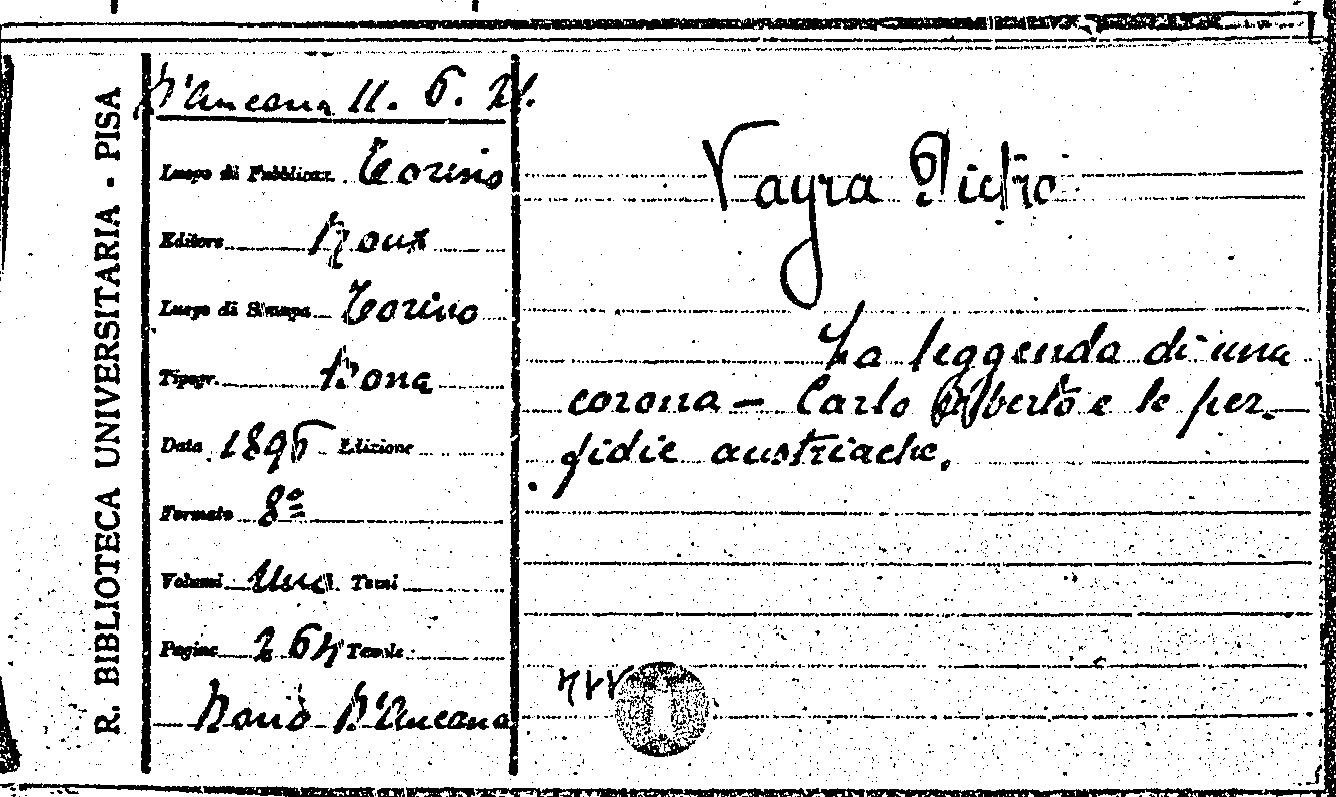 R. BIBLIOTECA UNIVERSITARIA - PISA
D'Ancona 11. 6. 21.
Luogo di Pubblicaz. Torino
Editore Roux
Luogo di Stampa Torino
Tipogr. Bona
Data 1896 Edizione
Formato 8º
Volumi Uno Tomi
Pagine 264 Tavole
Dono D'Ancona
Vayra Pietro
La leggenda di una
corona - Carlo Alberto e le per-
fidie austriache.